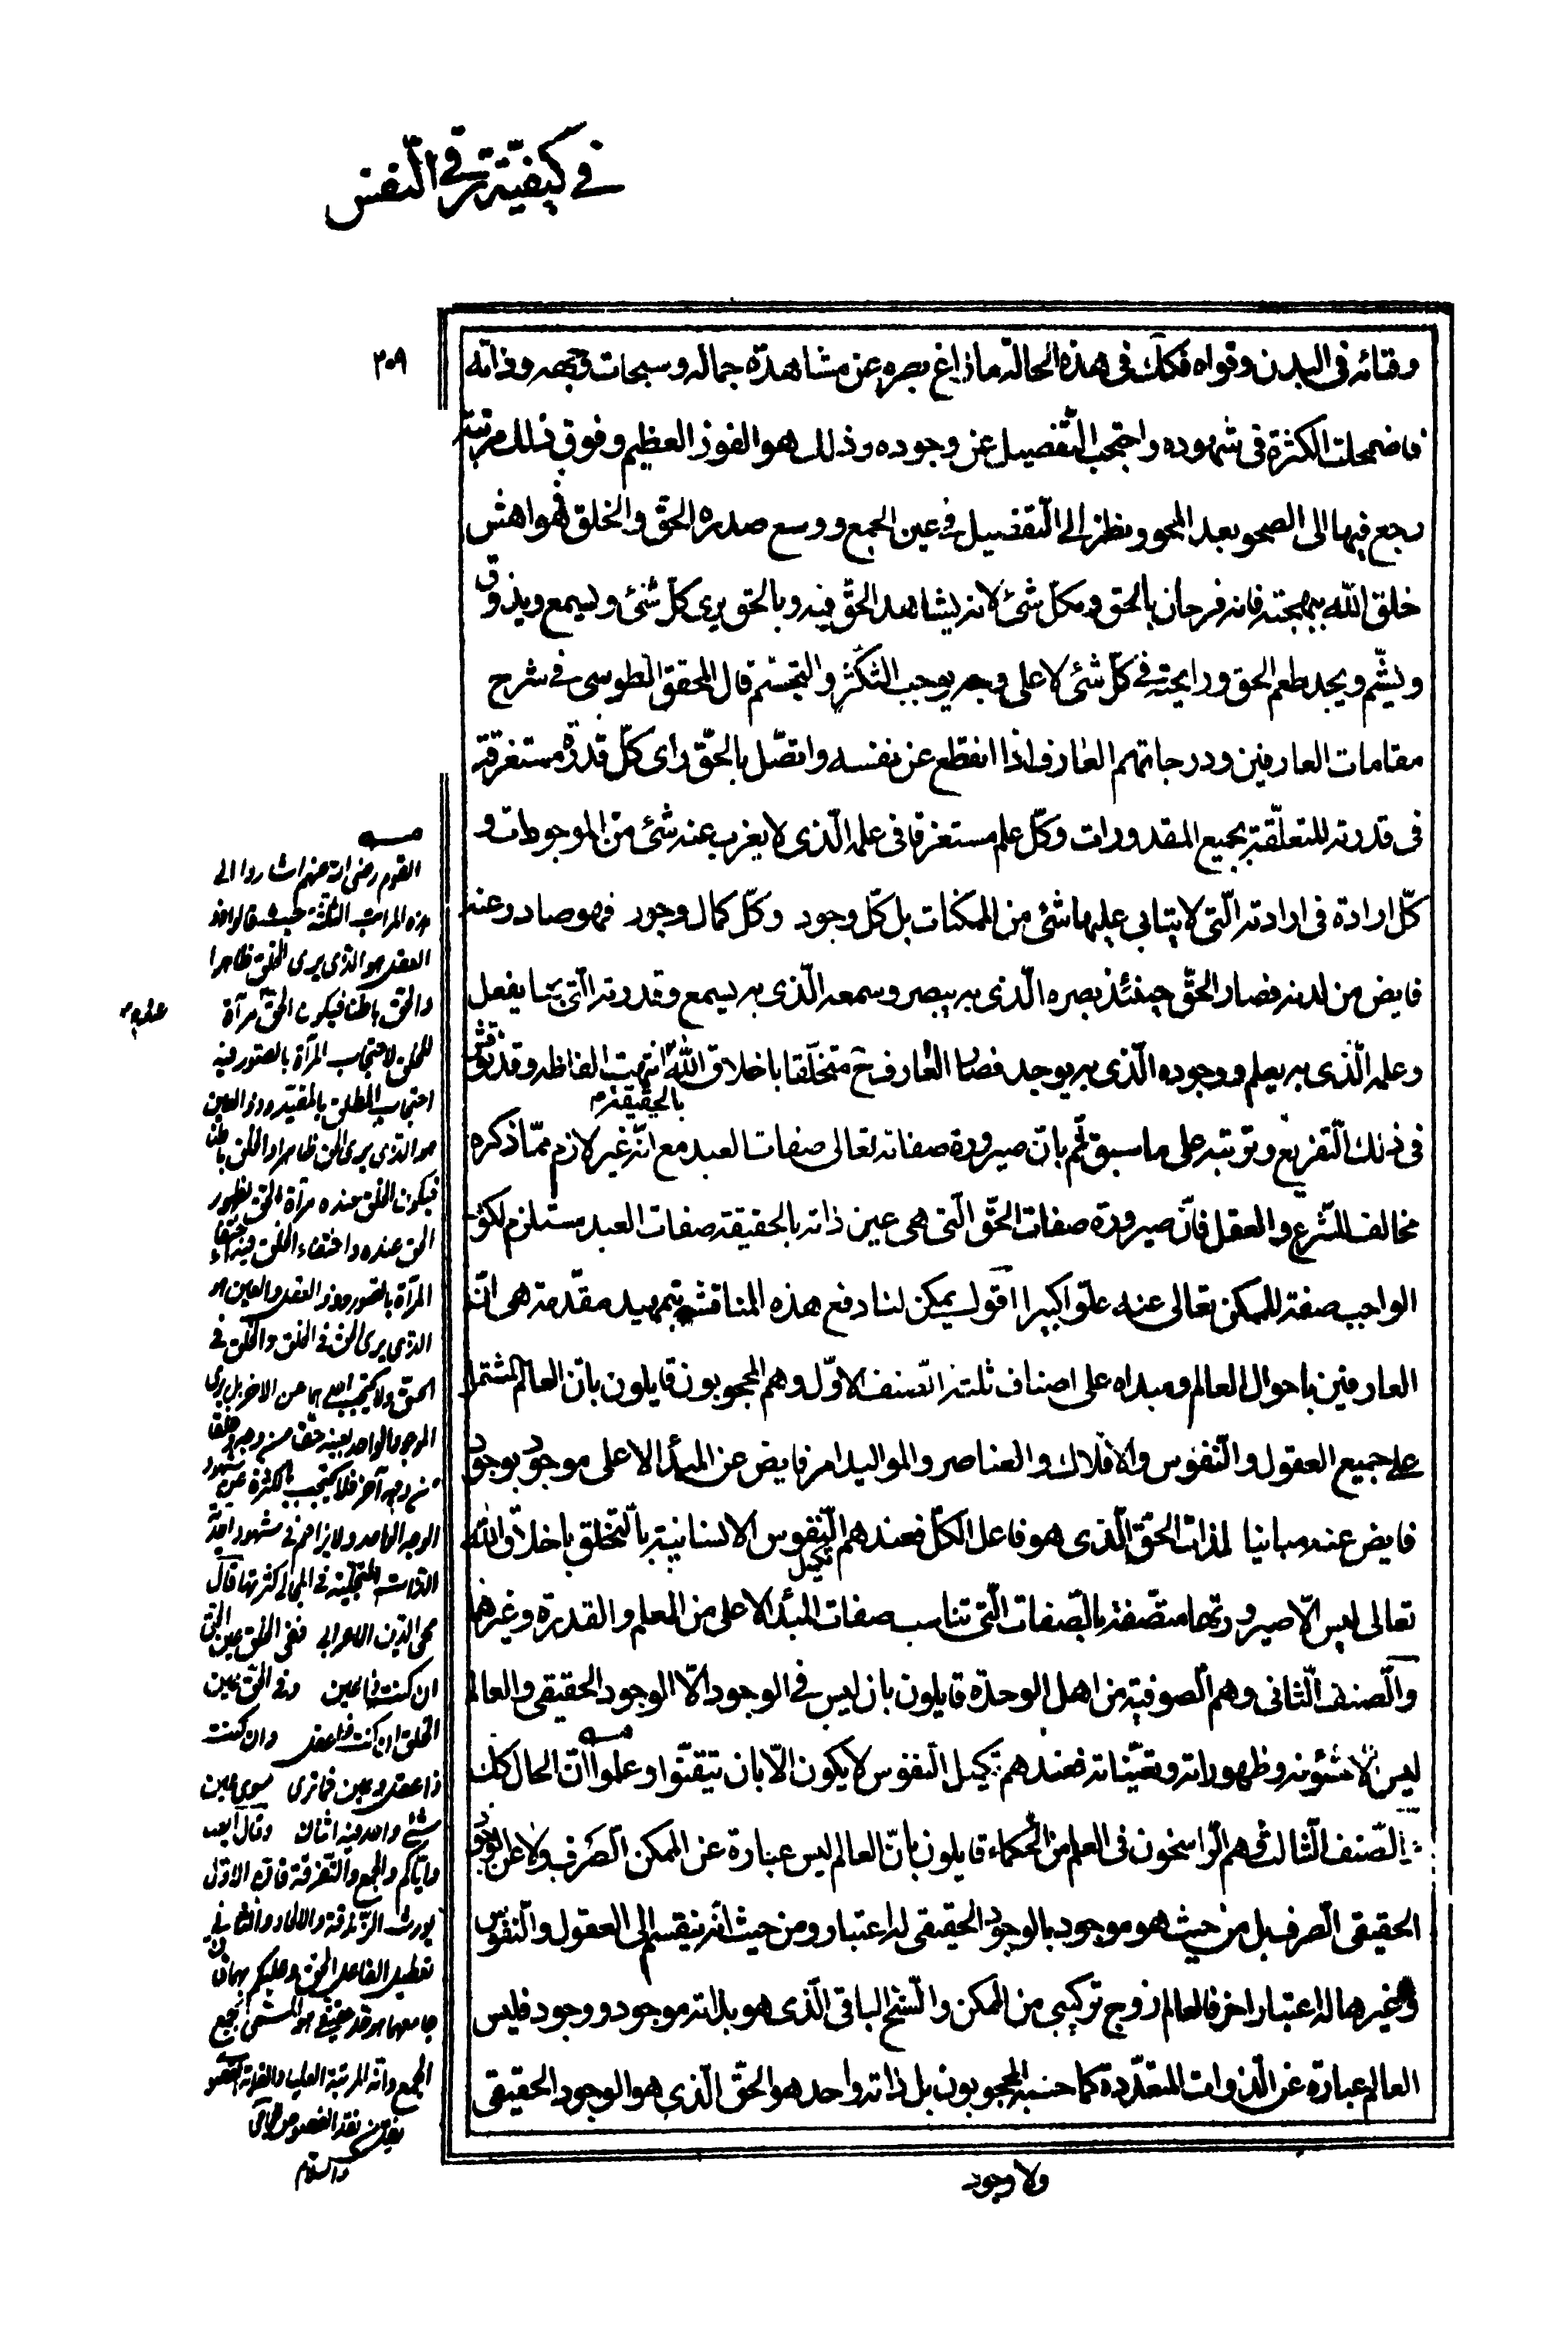 في كيفيّة ترقي النّفس
٣٠٩
وفنائه في البدن وقواه فكك في هذه الحالة ما زاغ بصره عن مشاهدة جماله وسبحات وجهه وذاته
فاضمحلت الكثرة في شهوده واحتجب التّفصيل عن وجوده وذلك هو الفوز العظيم وفوق ذلك مرتبة
رجع فيها الى الصحو بعد المحو ونظر الى التّفصيل في عين الجمع ووسع صدره الحقّ والخلق فهو اهش
خلق الله ببهجته فانه فرحان بالحق وبكل شئ لانه يشاهد الحقّ فيه وبالحق يرى كلّ شئ ويسمع ويذوق
ويشّم ويجد طعم الحق ورايحته في كلّ شئ لا على وجه يوجب التكثّر والتجسّم قال المحقق الطوسى في شرح
مقامات العارفين ودرجاتهم العارف اذا انقطع عن نفسه واتصّل بالحقّ راى كلّ قدرة مستغرقة
في قدرته المتعلّقة بجميع المقدورات وكلّ علم مستغرقا في علمه الّذى لا يعزب عنه شئ من الموجودات و
كلّ ارادة في ارادته الّتى لا يتابى عليها شئ من الممكنات بل كلّ وجود وكلّ كمال وجود فهو صادر عنه
فايض من لدنه فصار الحقّ حينئذ بصره الّذى به يبصر وسمعه الّذى به يسمع وقدرته الّتى بها يفعل
وعلمه الّذى به يعلم ووجوده الّذى به يوجد فصار العارف ح متخلّقا باخلاق الله انتهت الفاظه وقد نوقش
في ذلك التّفريع وترتبه على ما سبق ثم بانّ صيرورة صفاته تعالى صفات العبد بالحقيقة مع انّه غير لازم ممّا ذكره
مخالف للشّرع والعقل فانّ صيرورة صفات الحقّ الّتى هى عين ذاته بالحقيقة صفات العبد مستلزم لكون
الواجب صفة للممكن تعالى عنه علوّا كبيرا اقول يمكن لنا دفع هذه المناقشه بتمهيد مقدّمة هى انّ
العارفين باحوال العالم ومبداه على اصناف ثلثة الصّنف الاوّل وهم المحجوبون قايلون بانّ العالم المشتمل
على جميع العقول والنّفوس والافلاك والعناصر والمواليد امر فايض عن المبدأ الاعلى موجود بوجود
فايض عنه مباينا لذات الحقّ الّذى هو فاعل الكلّ فعندهم تكميل النّفوس الانسانية بالتخلق باخلاق الله
تعالى ليس الّا صيرورتها متصّفة بالصّفات الّتى تناسب صفات المبدأ الاعلى من العلم والقدرة وغيرهما
والّصنف الثّانى وهم الصّوفية من اهل الوحدة قايلون بان ليس في الوجود الّا الوجود الحقيقى والعالم
ليس الّا شئونه وظهوراته وتعيّناته فعندهم تكميل النفوس لا يكون الّا بان تيقنّوا وعلموا انّ الحال كك
الصّنف الثالث وهم الرّاسخون في العلم من الحكماء قايلون بانّ العالم ليس عبارة عن الممكن الصّرف ولا عن الوجود
الحقيقى الصّرف بل من حيث هو موجود بالوجود الحقيقى له اعتبار ومن حيث انّه ينقسم الى العقول والنّفوس
وغيرهما له اعتبار اخر فالعالم زوج تركيبى من الممكن والسّنخ الباقى الّذى هو بذاته موجود ووجود فليس
العالم عبارة عن الذّوات المتعدّدة كما حسبه المحجوبون بل ذاته واحد هو الحقّ الّذى هو الوجود الحقيقى
ولا وجود
القوم رضى الله عنهم اشاروا الى
هذه المراتب الثلثة حيث قالوا ذو
العقل هو الذى يرى الخلق ظاهرا
والحق باطنا فيكون الحق مرآة
للخلق لاحتجاب المرآة بالصور فيه
احتجاب المطلق بالمقيّد وذو العين
هو الذى يرى الحق ظاهرا والخلق باطنا
فيكون الخلق عنده مرآة الحق لظهور
الحق عنده واختفاء الخلق فيه اختفاء
المرآة بالصور وذو العقل والعين هو
الذى يرى الحق في الخلق والخلق في
الحق ولا يحتجب باحدهما عن الاخر بل يرى
الموجود الواحد بعينه حقا من وجه وخلقا
من وجه آخر فلا يحتجب بالكثرة عن شهود
الوجه الواحد ولا يزاحم في شهود احدية
الذات المتجلية في المجالى كثرتها قال
محى الدين الاعرابى ففى الخلق عين الحق
ان كنت ذا عين وفى الحق عين
الخلق ان كنت ذا عقل وان كنت
ذا عقل وعين فما ترى سوى عين
شئ واحد فيه اثنان وقال ايضا
واياكم والجمع والتفرقة فان الاول
يورث الزندقة والالحاد والثانى
تعطيل الفاعل الحق وعليكم بهما فان
جامعهما موحد حقيقى هو المسمى بجمع
الجمع وله المرتبة العليا والغاية القصوى
والسلام